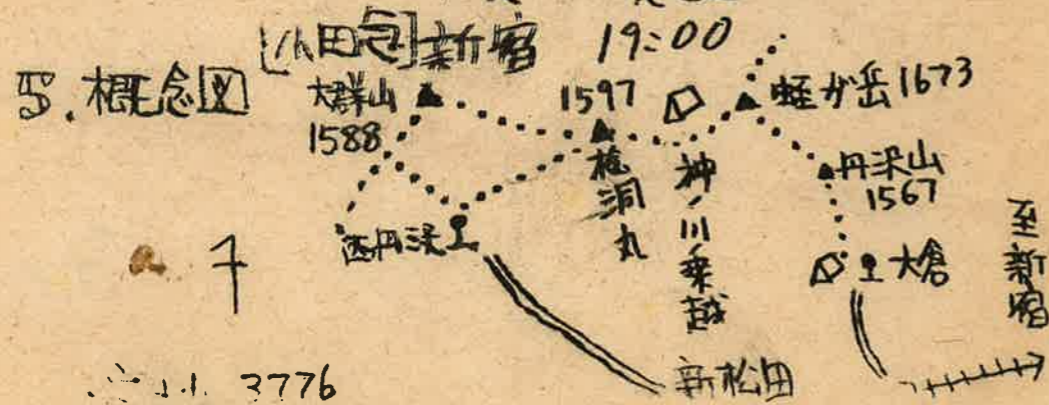 [小田急]新宿 19:00
5.概念図
大群山
1588
1597
桧洞丸
神ノ川乗越
蛭が岳1673
丹沢山
1567
西丹沢
大倉
至新宿
新松田
3776